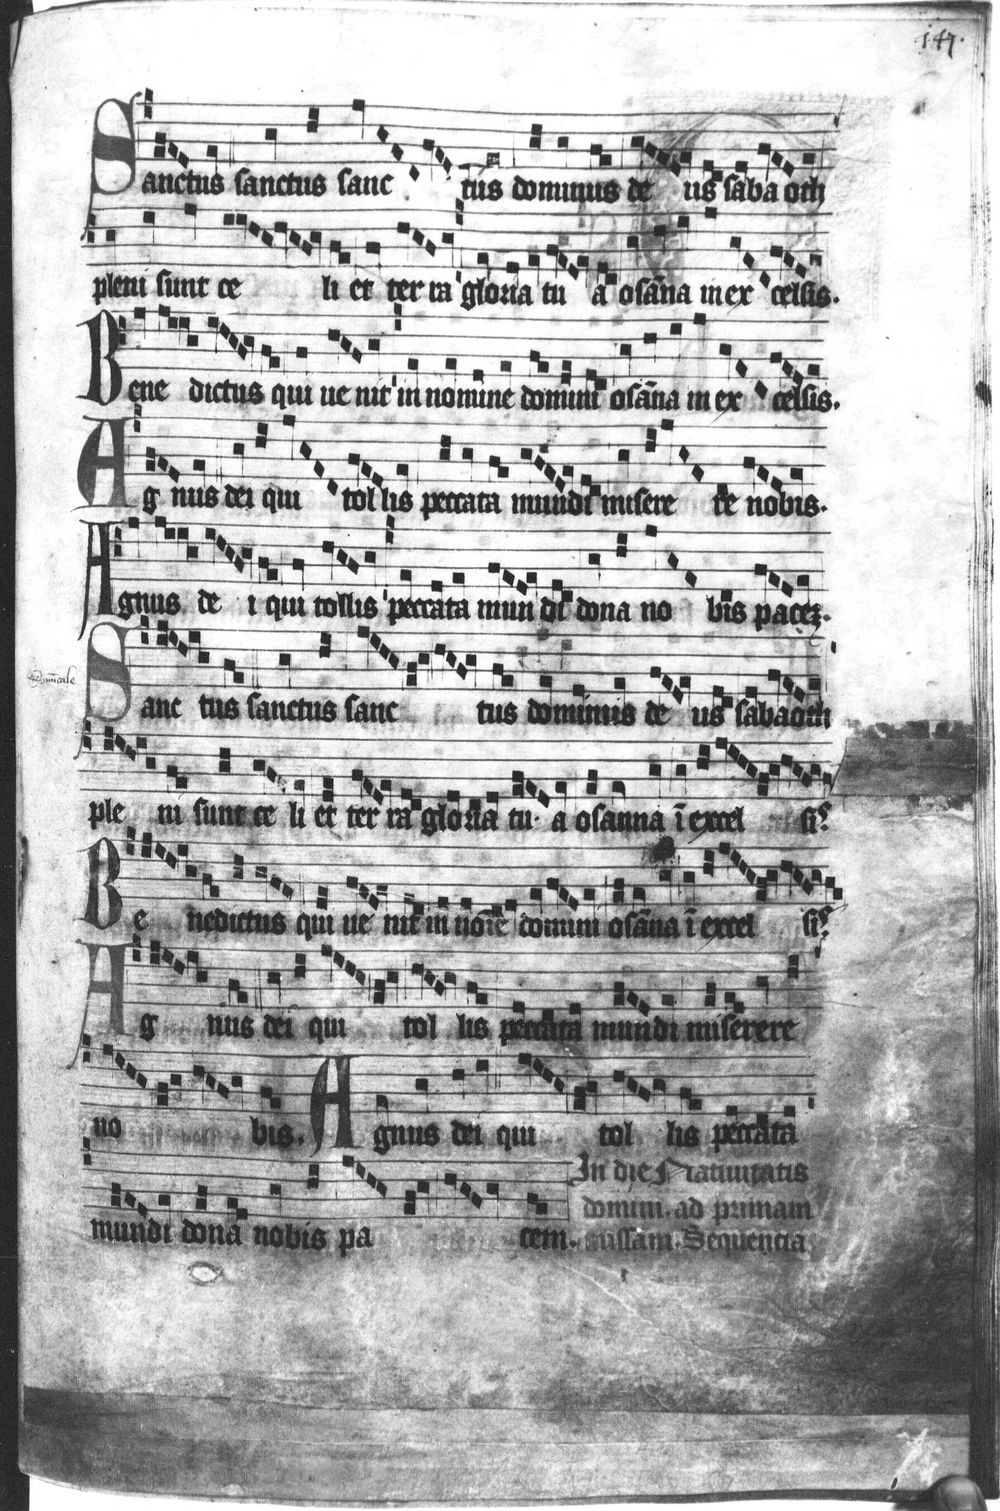 147.
Sanctus sanctus sanc tus dominus de us saba oth
pleni sunt ce li et ter ra gloria tu a osāna in ex celsis.
Bene dictus qui ue nit in nomine domini osāna in ex celsis.
Ag nus dei qui tol lis peccata mundi misere re nobis.
Agnus de i qui tollis peccata mun di dona no bis pacez.
Dominicale
Sanc tus sanctus sanc tus dominus de us sabaoth
ple ni sunt ce li et ter ra gloria tu. a osanna ī excel sis
Be nedictus qui ue nit in noīe domini osāna ī excel sis
Ag nus dei qui tol lis peccata mundi miserere
no bis. Agnus dei qui tol lis peccata
In die Natiuitatis
domini. ad primam
mundi dona nobis pa cem. missam. Sequencia